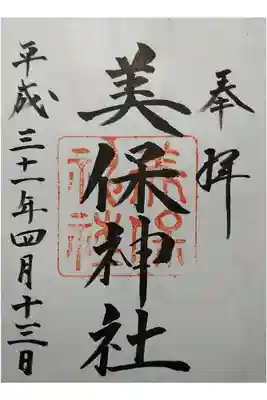 奉拝
美保神社
平成三十一年四月十三日